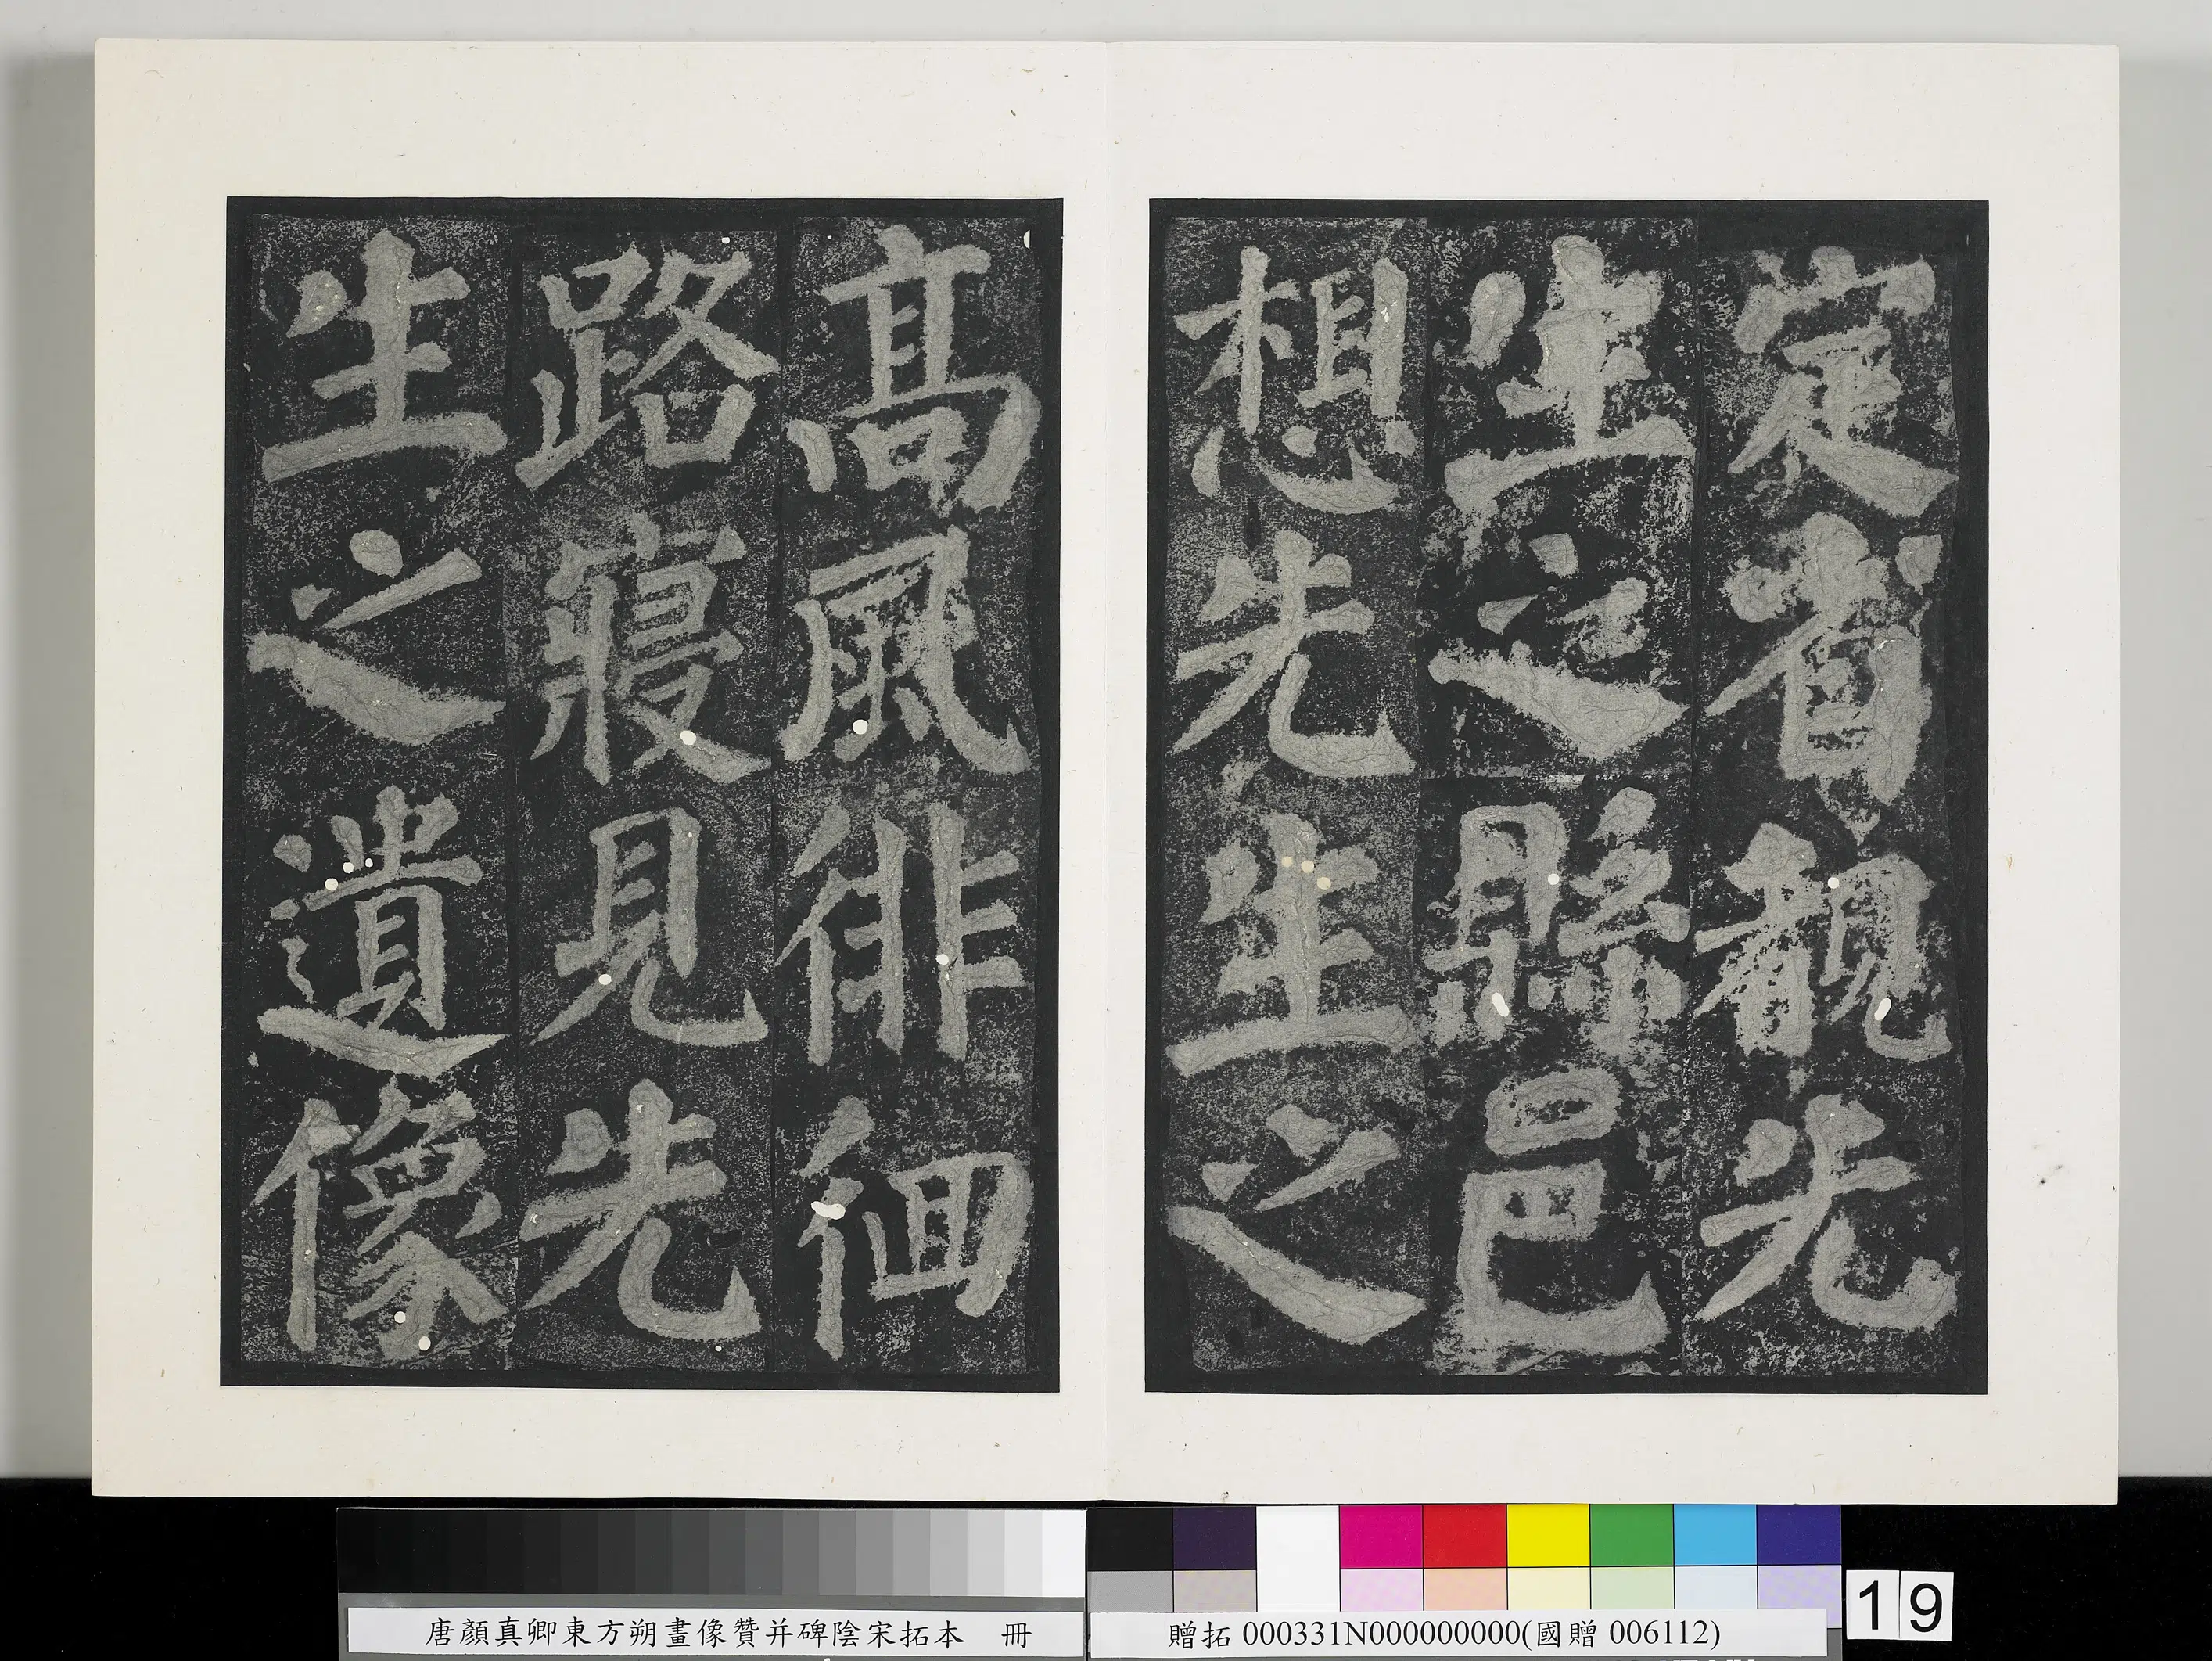 定省覩先
生之縣邑
想先生之
高風俳佪
路寝見先
生之遺像
唐顏真卿東方朔畫像贊并碑陰宋拓本 冊
贈拓 000331N000000000(國贈 006112)
19